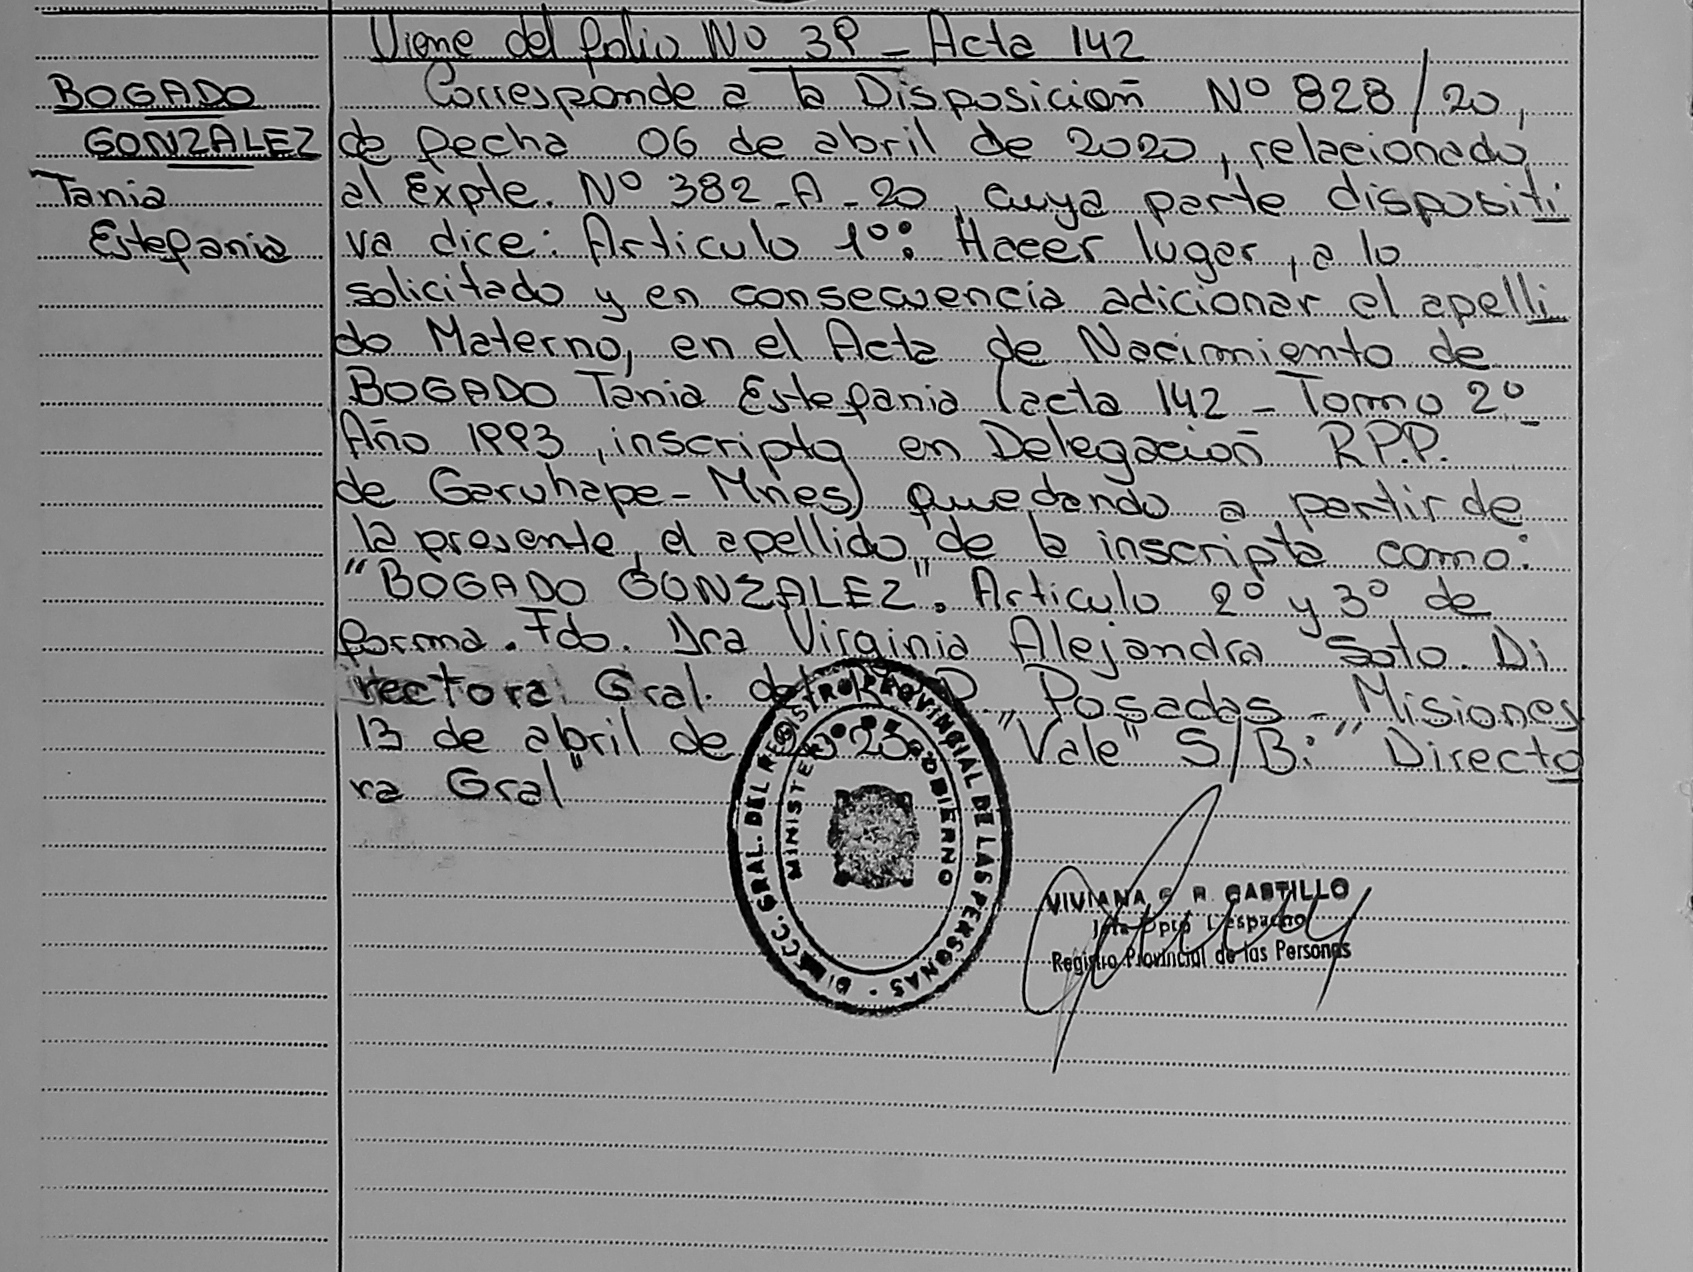 Viene del folio Nº 39 - Acta 142
BOGADO
GONZALEZ
Tania
Estefania
Corresponde a la Disposición Nº 828/20,
de fecha 06 de abril de 2020, relacionado
al Expte. Nº 382-A-20, cuya parte dispositi
va dice: Articulo 1º: Hacer lugar, a lo
solicitado y en consecuencia adicionar el apelli
do Materno, en el Acta de Nacimiento de
BOGADO Tania Estefania (acta 142 - Tomo 2º
Año 1993, inscripta en Delegación R.P.P.
de Garuhape - Mnes) quedando a partir de
la presente, el apellido de la inscripta como:
"BOGADO GONZALEZ". Articulo 2º y 3º de
forma. Fdo. Dra Virginia Alejandra Soto. Di
rectora Gral. del P. Posadas - Misiones
13 de abril de "Vale" S/B: "Directo
ra Gral"
DIRECC. GRAL. DEL REGISTRO PROVINCIAL DE LAS PERSONAS -
MINISTERIO DE GOBIERNO
VIVIANA R. CASTILLO
Jefa Dpto Despacho
Registro Provincial de las Personas